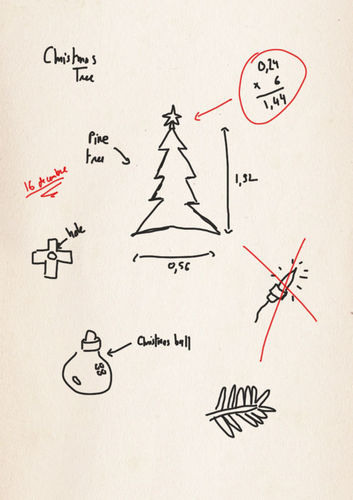 Christmas
Tree
0,24
x 6
1,44
Pine
tree
16 decembre
1,92
hole
0,56
Christmas ball